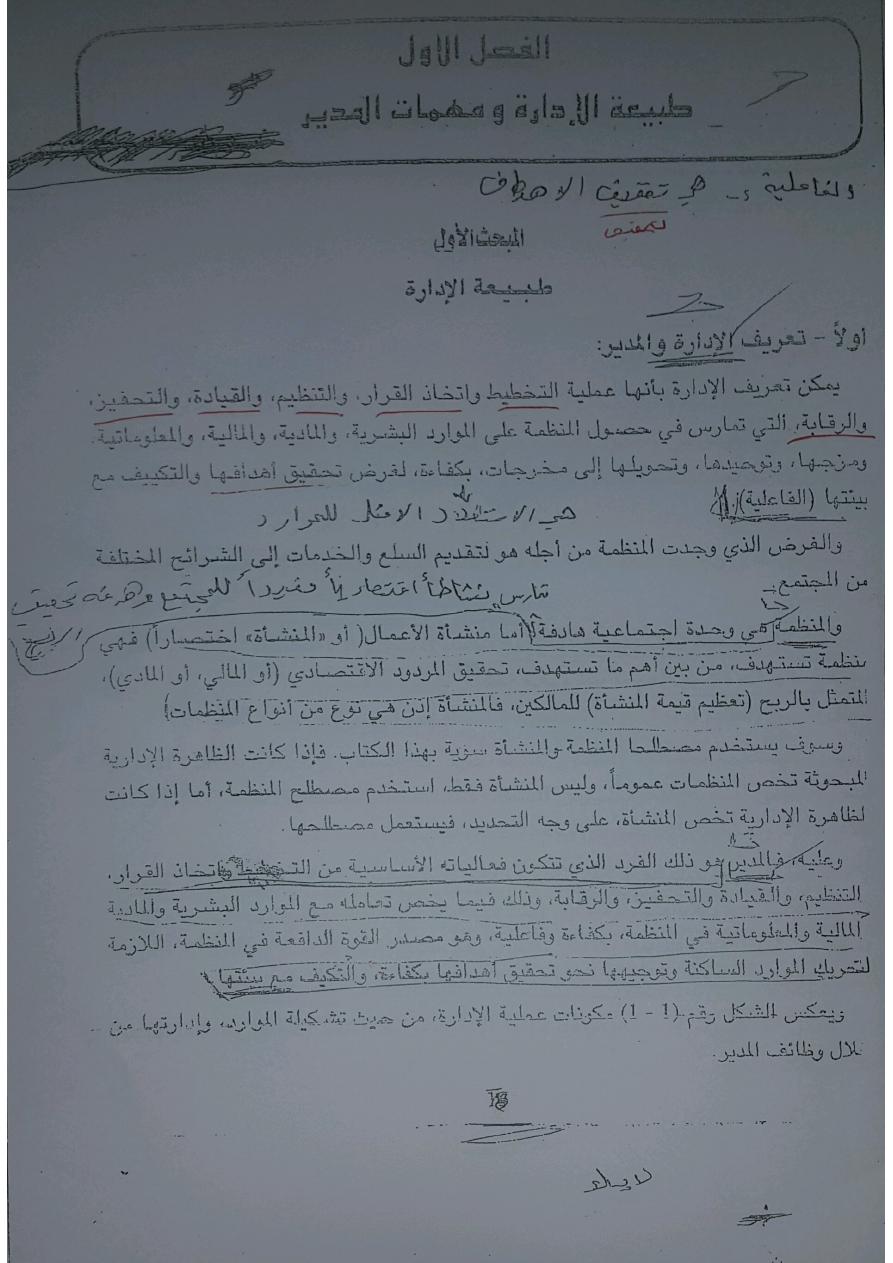 الفصل الأول
طبيعة الإدارة ومهمات المدير
والفاعلية :- هي تحقيق الاهداف
المبحث الأول
طبيعة الإدارة
أولاً - تعريف الإدارة والمدير:
يمكن تعريف الإدارة بأنها عملية التخطيط واتخاذ القرار، والتنظيم، والقيادة، والتحفيز،
والرقابة، التي تمارس في حصول المنظمة على الموارد البشرية، والمادية، والمالية، والمعلوماتية.
ومزجها، وتوحيدها، وتحويلها إلى مخرجات، بكفاءة، لغرض تحقيق أهدافها والتكييف مع
بيئتها (الفاعلية).
هي الاستغلال الامثل للموارد
والغرض الذي وجدت المنظمة من أجله هو لتقديم السلع والخدمات إلى الشرائح المختلفة
من المجتمع.
تمارس نشاطاً اقتصادياً للمجتمع تحقيق
الربح
والمنظمة هي وحدة اجتماعية هادفة، أما منشأة الأعمال( أو «المنشأة» اختصاراً) فهي
منظمة تستهدف، من بين أهم ما تستهدف، تحقيق المردود الاقتصادي (أو المالي، أو المادي)،
المتمثل بالربح (تعظيم قيمة المنشأة) للمالكين، فالمنشأة إذن هي نوع من أنواع المنظمات)
وسوف يستخدم مصطلحا المنظمة والمنشأة سوية بهذا الكتاب. فإذا كانت الظاهرة الإدارية
المبحوثة تخص المنظمات عموماً، وليس المنشأة فقط، استخدم مصطلح المنظمة، أما إذا كانت
لظاهرة الإدارية تخص المنشأة، على وجه التحديد، فيستعمل مصطلحها.
وعليه، فالمدير هو ذلك الفرد الذي تتكون فعالياته الأساسية من التخطيط واتخاذ القرار،
التنظيم، والقيادة والتحفيز، والرقابة، وذلك فيما يخص تعامله مع الموارد البشرية والمادية
المالية والمعلوماتية في المنظمة، بكفاءة وفاعلية، وهو مصدر القوة الدافعة في المنظمة، اللازمة
لتحريك الموارد الساكنة وتوجيهها نحو تحقيق أهدافها بكفاءة، والتكيف مع بيئتها.
ويعكس الشكل رقم (1 - 1) مكونات عملية الإدارة، من حيث تشكيلة الموارد، وإدارتها من
خلال وظائف المدير.